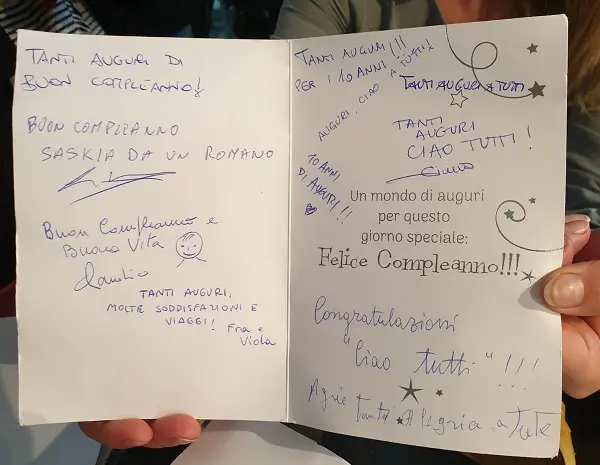 TANTI AUGURI DI
BUON COMPLEANNO!
BUON COMPLEANNO
SASKIA DA UN ROMANO
Buon Compleanno e
Buona Vita
Claudio
TANTI AUGURI,
MOLTE SODDISFAZIONI E
VIAGGI!
Fra e
Viola
TANTI AUGURI!!!
PER I 10 ANNI!
AUGURI, CIAO A TUTTI!
TANTI AUGURI A TUTTI
TANTI
AUGURI
CIAO TUTTI!
10 ANNI
DI AUGURI!!!
Un mondo di auguri
per questo
giorno speciale:
Felice Compleanno!!!
Congratulazioni
"Ciao tutti"!!!
Alegria a Tute